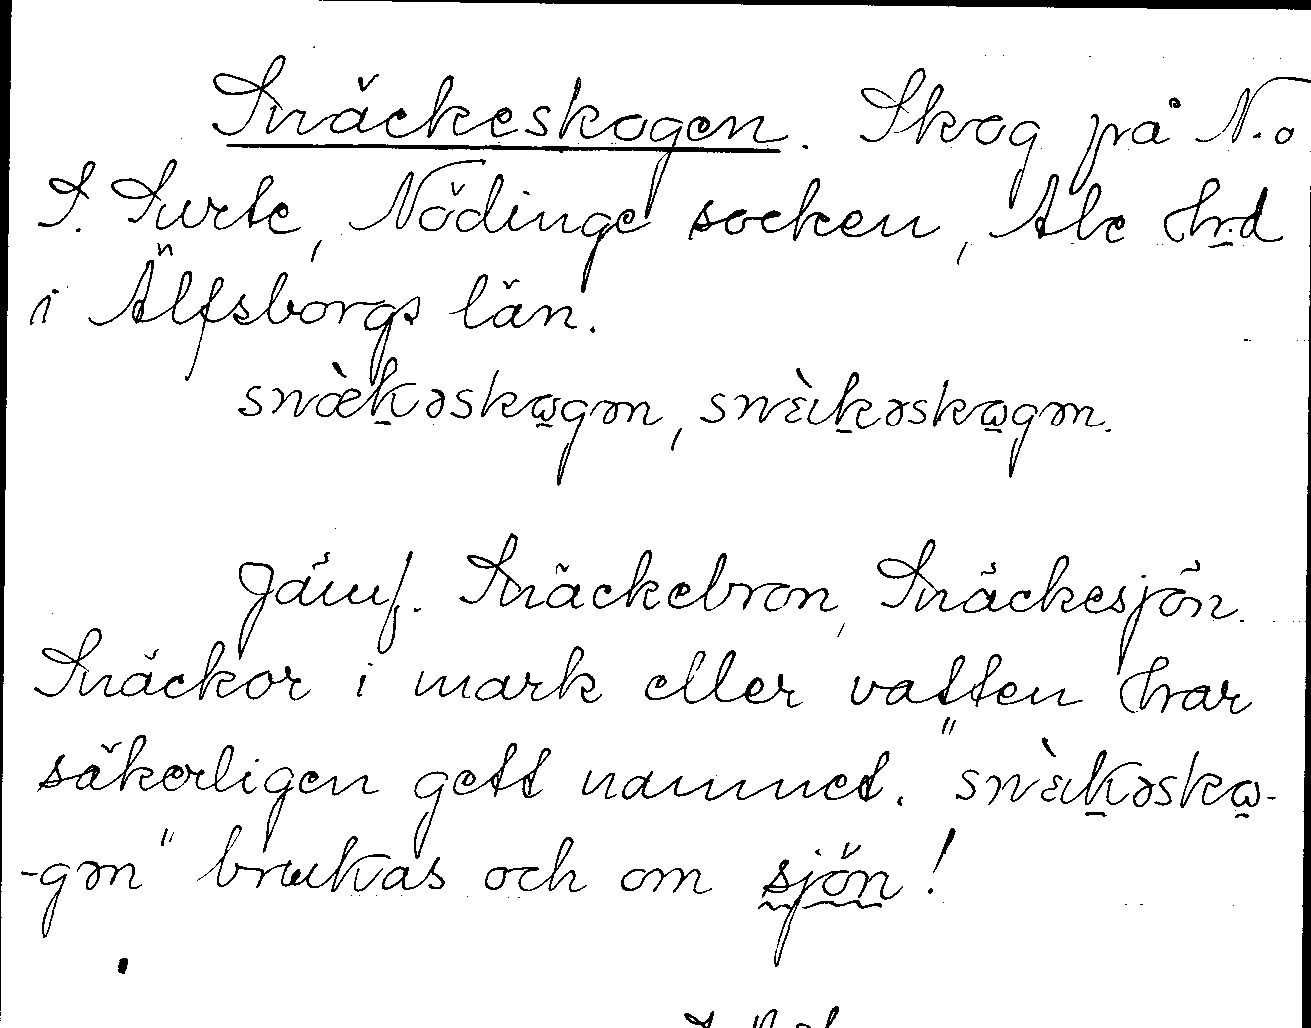 Snäckeskogen. Skog på N. o
S. Surte, Nödinge socken, Ale hrd
i Älfsborgs län.
snæ̀k̠əskɷ̠gən, snɛ̀ık̠əskɷ̠gən.
Jämf. Snäckebron, Snäckesjön.
Snäckor i mark eller vatten har
säkerligen gett namnet. "snɛ̀ık̠əskɷ̠-
-gən" brukas och om sjön!